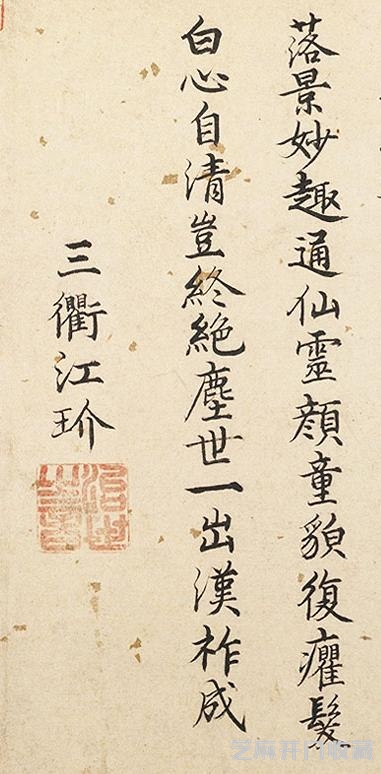 落景妙趣通仙靈顔童貌復癯髮
白心自清豈終絶塵世一出漢祚成
三衢江玠
芝麻开门收藏